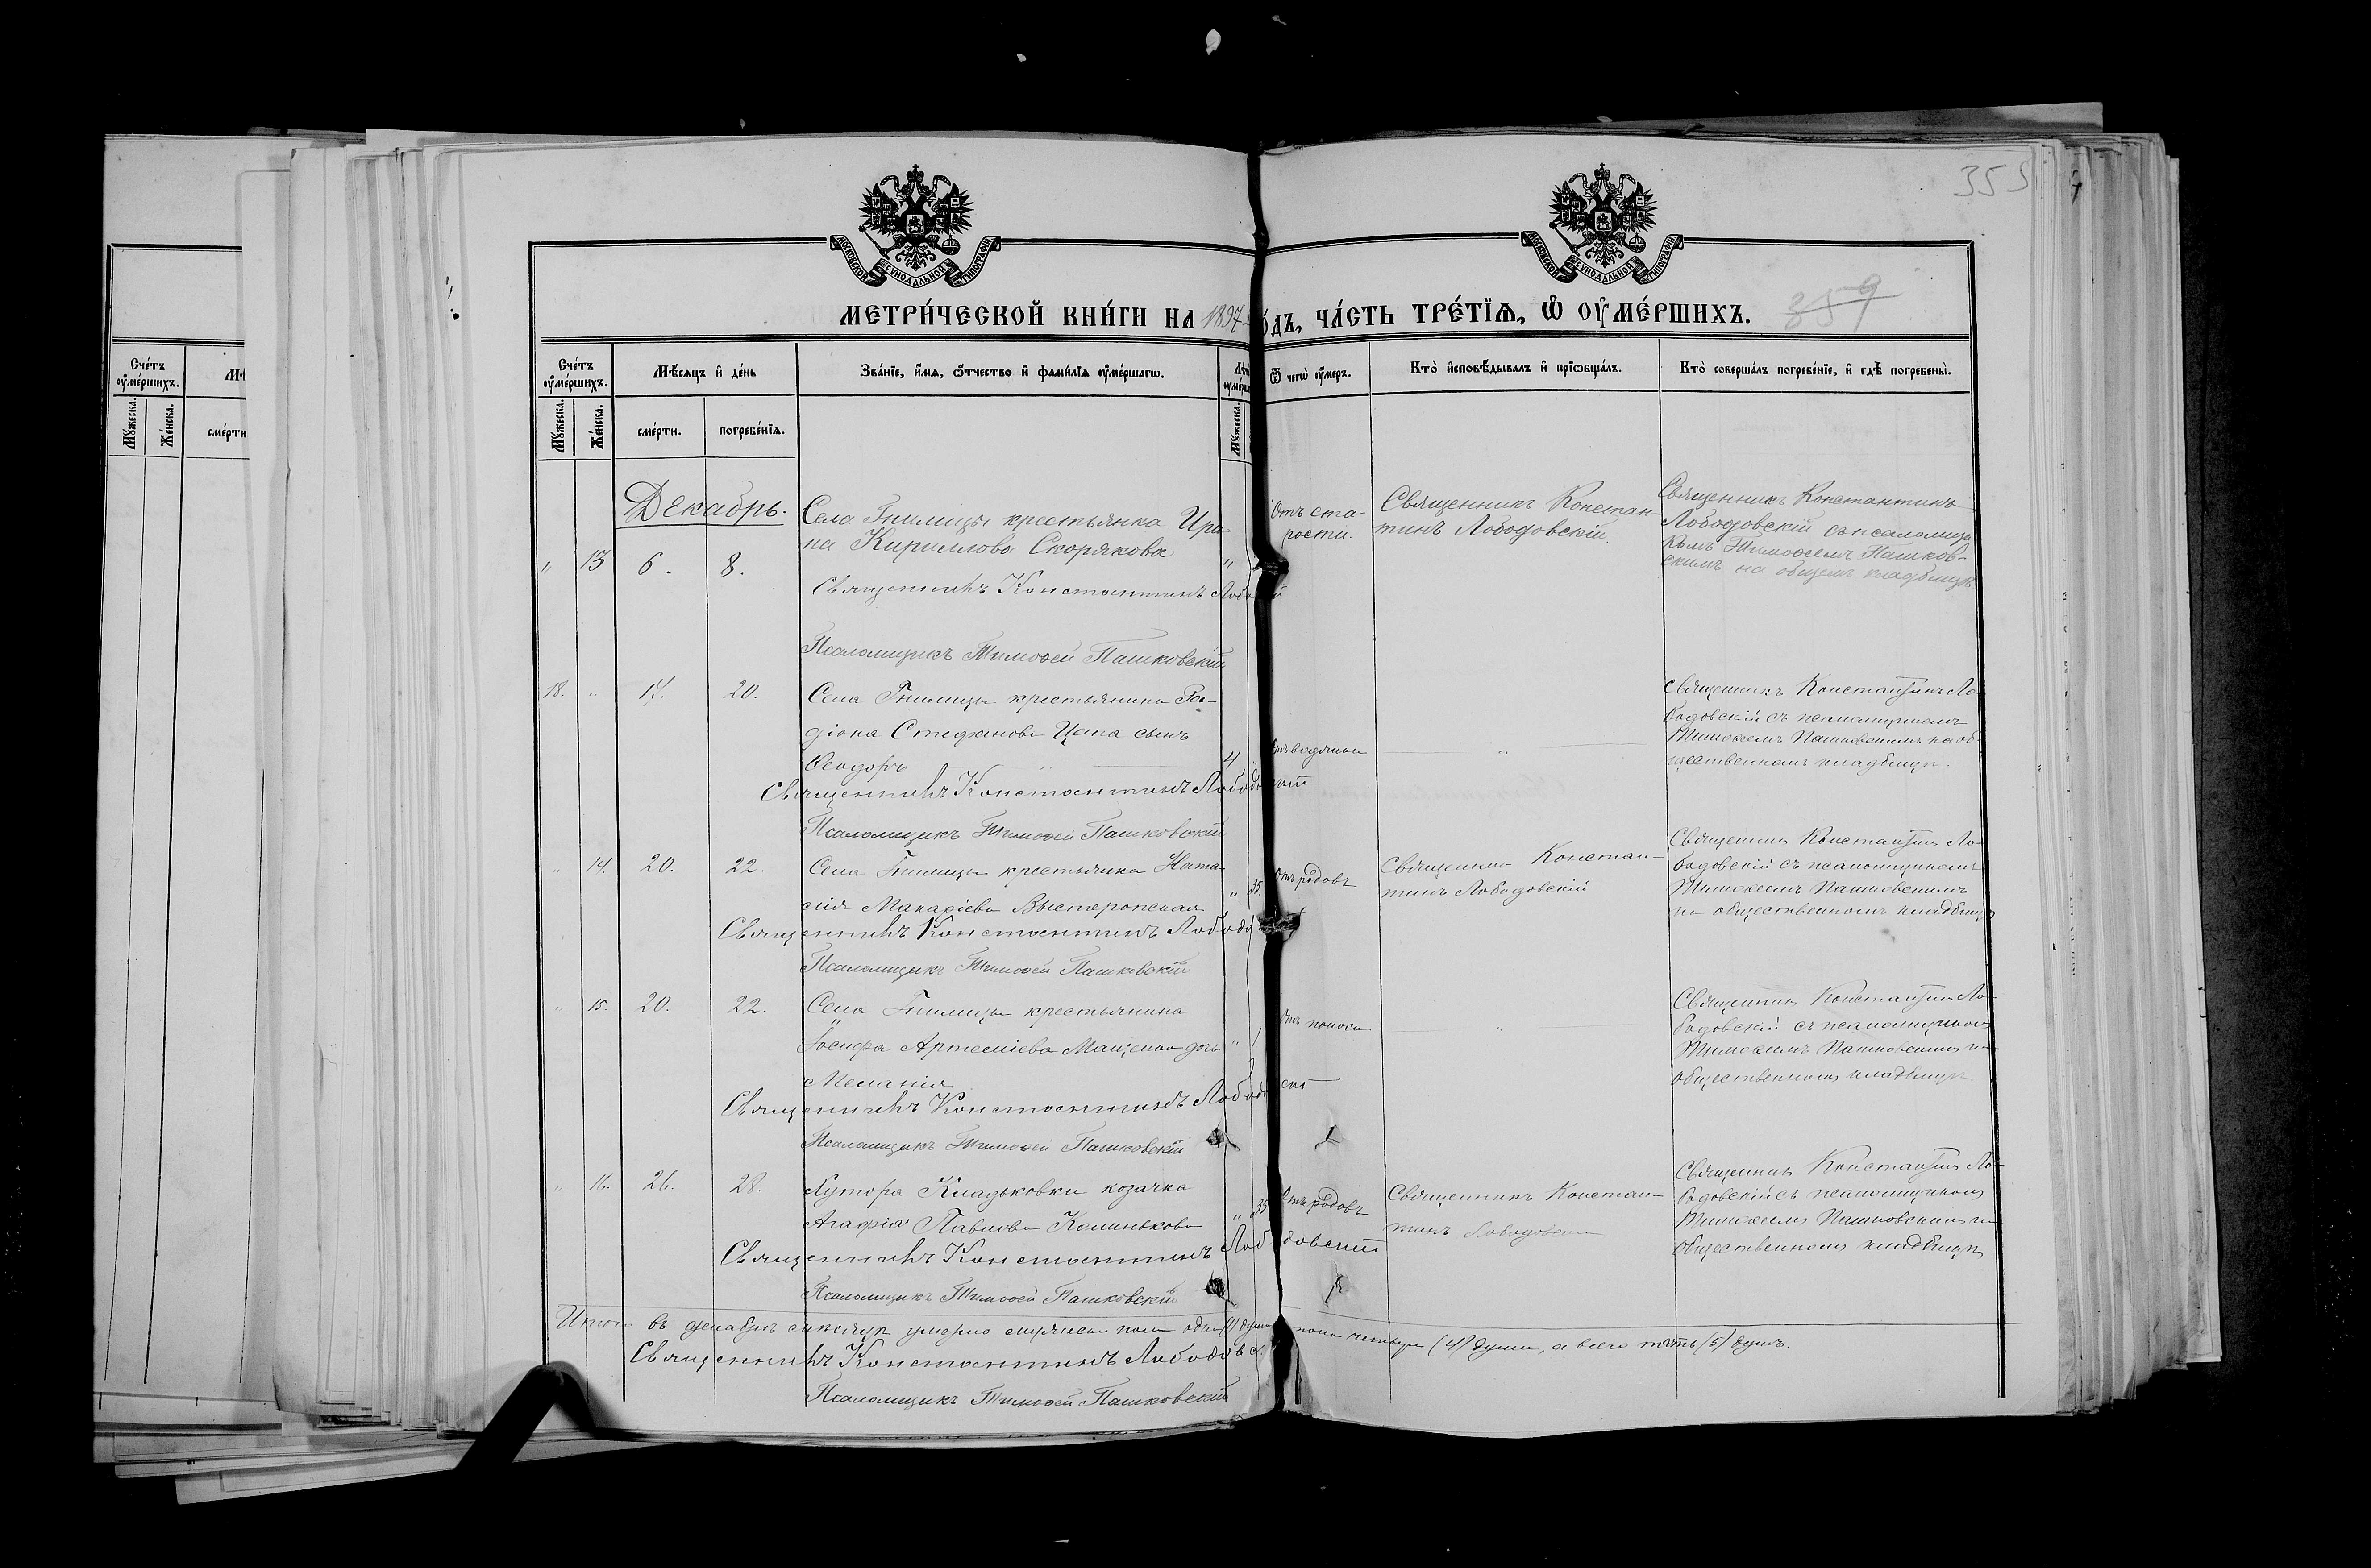 355
МОСКОВСКОЙ СУНОДАЛЬНОЙ ТИПОГРАФІИ
МОСКОВСКОЙ СУНОДАЛЬНОЙ ТИПОГРАФІИ
МЕТРИ́ЧЕСКОЙ КНИ́ГИ НА 1897 ГО́ДЪ, ЧА́СТЬ ТРЕ́ТЇѦ, Ѿ ОУ҆МЕ́РШИХЪ.
359
Сче́тъ оу҆ме́ршихъ.
Мѣ́сяцъ и҆ де́нь
Зва́нїе, и҆́мя, ѻ҆́тчество и҆ фами́лїя оу҆ме́ршагѡ.
Ѿ чегѡ̀ оу҆́меръ.
Кто̀ и҆сповѣ́дывалъ и҆ прїѡбща́лъ.
Кто̀ соверша́лъ погребе́нїе, и҆ гдѣ̀ погребены̀.
Му́жеска.
Же́нска.
сме́рти.
погребе́нїя.
Му́жеска.
Декабрь.
" 13 6. 8.
Села Гнилицы крестьянка Ири-
на Кириллова Скорякова "
Отъ ста-
рости.
Священникъ Констан-
тинъ Лободовскій.
Священникъ Константинъ
Лободовскій съ псаломщи
комъ Тимоѳеемъ Пашков-
скимъ на общемъ кладбищѣ
Священникъ Константинъ
Псаломщикъ Тимоѳей Пашковскій
18. " 17. 20.
Села Гнилицы крестьянина Ро-
діона Стефанова Цапа сынъ
Ѳеодоръ " 4 "
водянки
"
Священникъ Константинъ Ло-
бодовскій съ псаломщикомъ
Тимоѳеемъ Пашковскимъ на об-
щественномъ кладбищѣ.
Священникъ Константинъ
Псаломщикъ Тимоѳей Пашковскій
" 14. 20. 22.
Села Гнилицы крестьянка Ната-
лія Макаріева " 35
родовъ
Священникъ Констан-
тинъ Лободовскій
Священникъ Константинъ Ло-
бодовскій съ псаломщикомъ
Тимоѳеемъ Пашковскимъ
на общественномъ кладбищѣ
Священникъ Константинъ
Псаломщикъ Тимоѳей Пашковскій
" 15. 20. 22.
Села Гнилицы крестьянина
Іосифа Артеміева Мащенка дочь " 1
Меланія
поноса
"
Священникъ Константинъ Ло-
бодовскій съ псаломщикомъ
Тимоѳеемъ Пашковскимъ на
общественномъ кладбищѣ
Священникъ Константинъ
Псаломщикъ Тимоѳей Пашковскій
" 16. 26. 28.
Хутора Кладьковки козачка
Агафія Павлова Калинькова " 35
Отъ родовъ
Священникъ Констан-
тинъ Лободовскій
Священникъ Константинъ Ло-
бодовскій съ псаломщикомъ
Тимоѳеемъ Пашковскимъ на
общественномъ кладбищѣ
Священникъ Константинъ Лободовскій
Псаломщикъ Тимоѳей Пашковскій
Итого въ декабрѣ мѣсяцѣ умерло мужеска пола одна (1) душа пола четыре (4) души, а всего пять (5) душъ.
Священникъ Константинъ
Псаломщикъ Тимоѳей Пашковскій
Сче́тъ оу҆ме́ршихъ.
Му́жеска.
Же́нска.